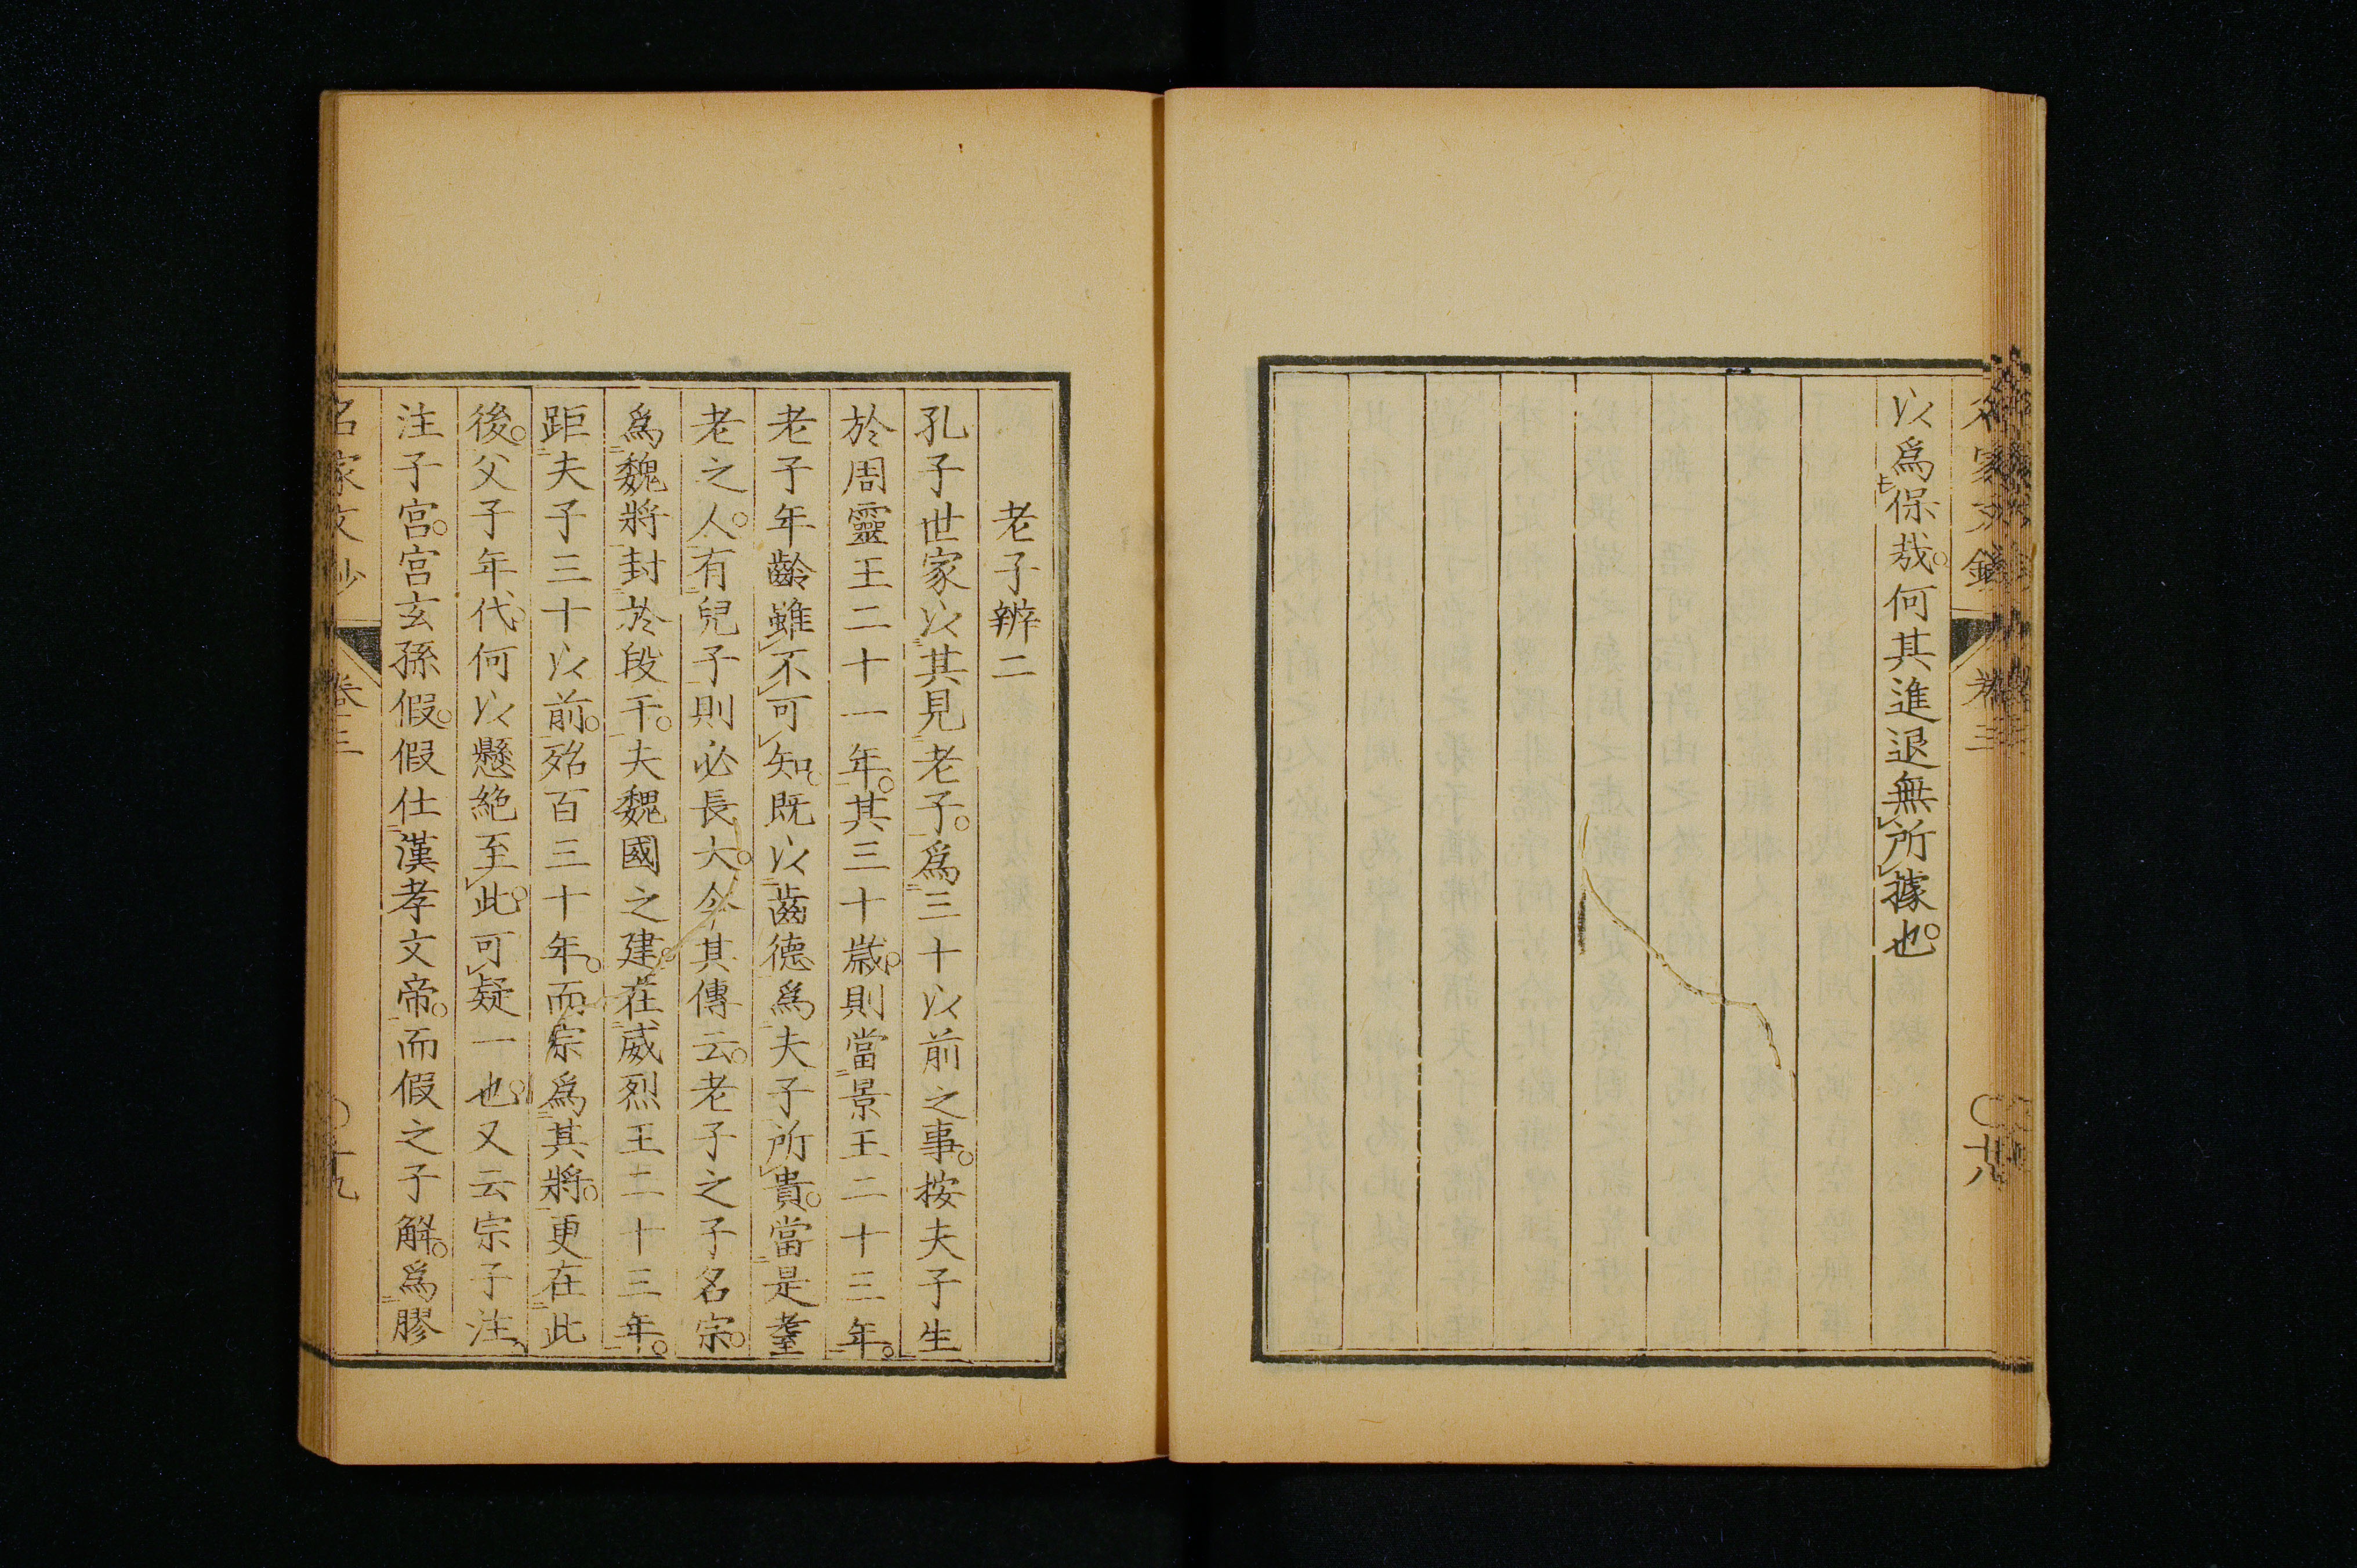 以爲保哉。何其進退無所據也。
老子辨二
孔子世家以其見老子。爲三十以前之事。按夫子生
於周靈王二十一年。其三十歲。則當景王二十三年。
老子年齡雖不可知。既以齒德爲夫子所貴。當是耋
老之人。有兒子則必長大。今其傳云。老子之子名宗。
爲魏將封於段干。夫魏國之建。在威烈王二十三年。
距夫子三十以前。殆百三十年。而宗爲其將。更在此
後。父子年代。何以懸絶至此。可疑一也。又云宗子注、
注子宮。宮玄孫假。假仕漢孝文帝。而假之子解。爲膠
名家文抄
卷三